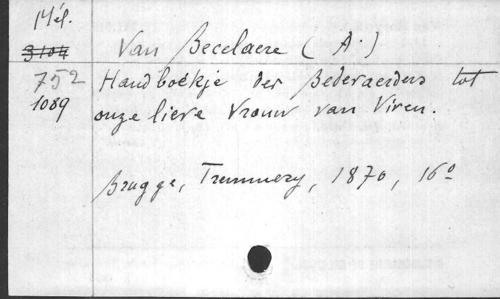 Mél.
3104
Van Becelaere (A.)
752
Handboekje der Bedevaerders tot
1089
onze lieve Vrouw van Viven.
Brugge, Tremmery, 1870, 16º